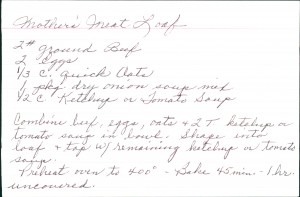 Mother's Meat Loaf
2# ground Beef
2 Eggs
1/3 C. Quick Oats
1 pkg dry onion soup mix
1/2 C Ketchup or Tomato Soup
Combine beef, eggs, oats & 2 T ketchup or
tomato soup in bowl - Shape into
loaf & top w/ remaining ketchup or tomato
soup.
Preheat oven to 400° - Bake 45 min. - 1 hr.
uncovered.